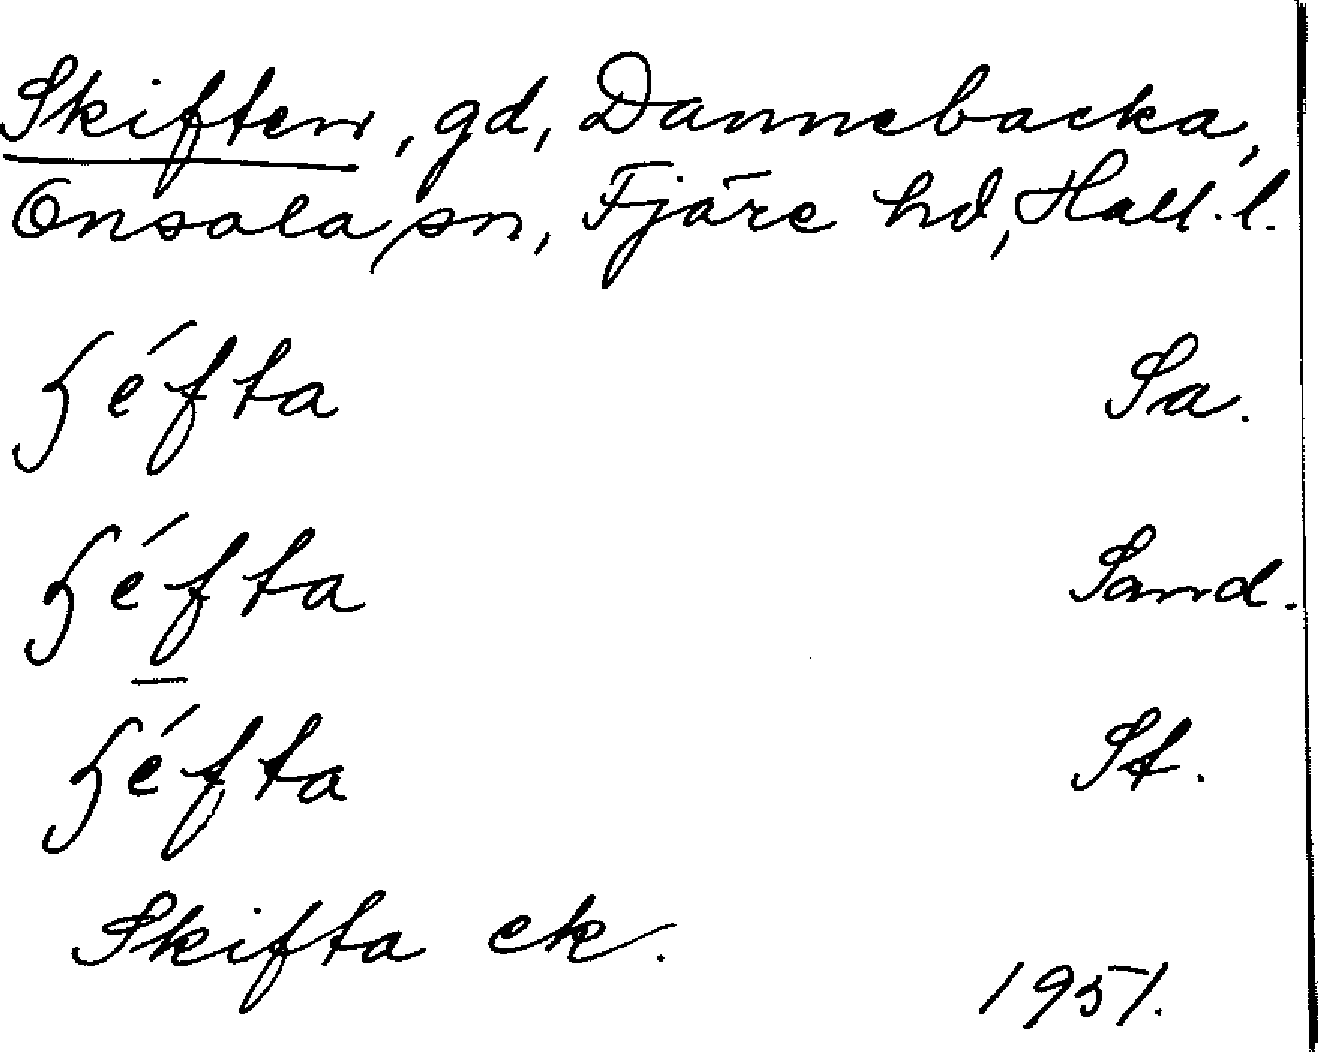 Skiften, gd, Dannebacka,
Onsala sn, Fjäre hd, Hall. l.
ʒéfta Sa.
ʒéfta Sand.
ʒéfta St.
Skifta ek.
1951.